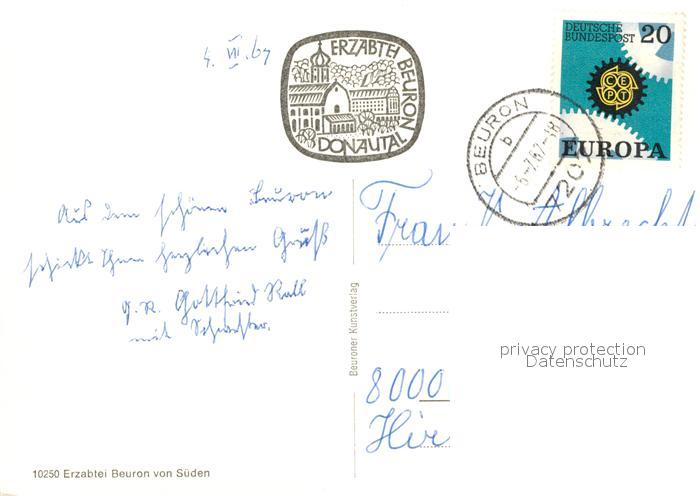 4. VII. 67
ERZABTEI BEURON
DONAUTAL
DEUTSCHE
BUNDESPOST 20
CEPT
EUROPA
BEURON
b
-6.-7.67.-18
720
Aus dem schönen Beuron
schickt Ihnen herzlichen Gruß
Gottfried Rall
mit Schwester.
Frau
8000
Hir
Beuroner Kunstverlag
privacy protection
Datenschutz
10250 Erzabtei Beuron von Süden